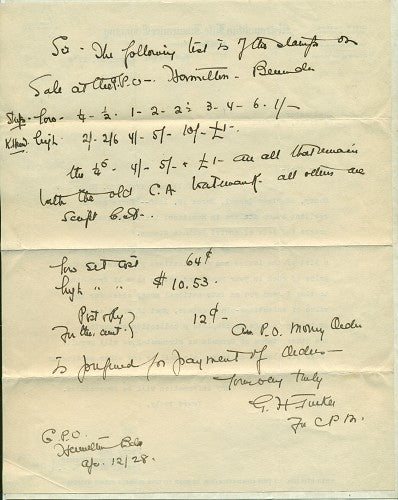 Sir - The following list is of the stamps on
Sale at the G.P.O - Hamilton - Bermuda
Ships - low - ¼ - ½ - 1 - 2 - 2½ 3 - 4 - 6 - 1/-
K. Head high 2/- 2/6 4/- 5/- 10/- £1 -
the ¼d - 4/- 5/- + £1 - are all that remain
with the old C.A watermark. all others are
Script C.A -
low set cost 64¢
high " " $ 10.53
Post & Rg
for the. amt. } 12¢ -
an P.O. Money Order
Is preferred for payment of Orders -
Yours very truly
G. H. Tucker
For C P M.
G.P.O.
Hamilton Bda
Apr. 12/28.